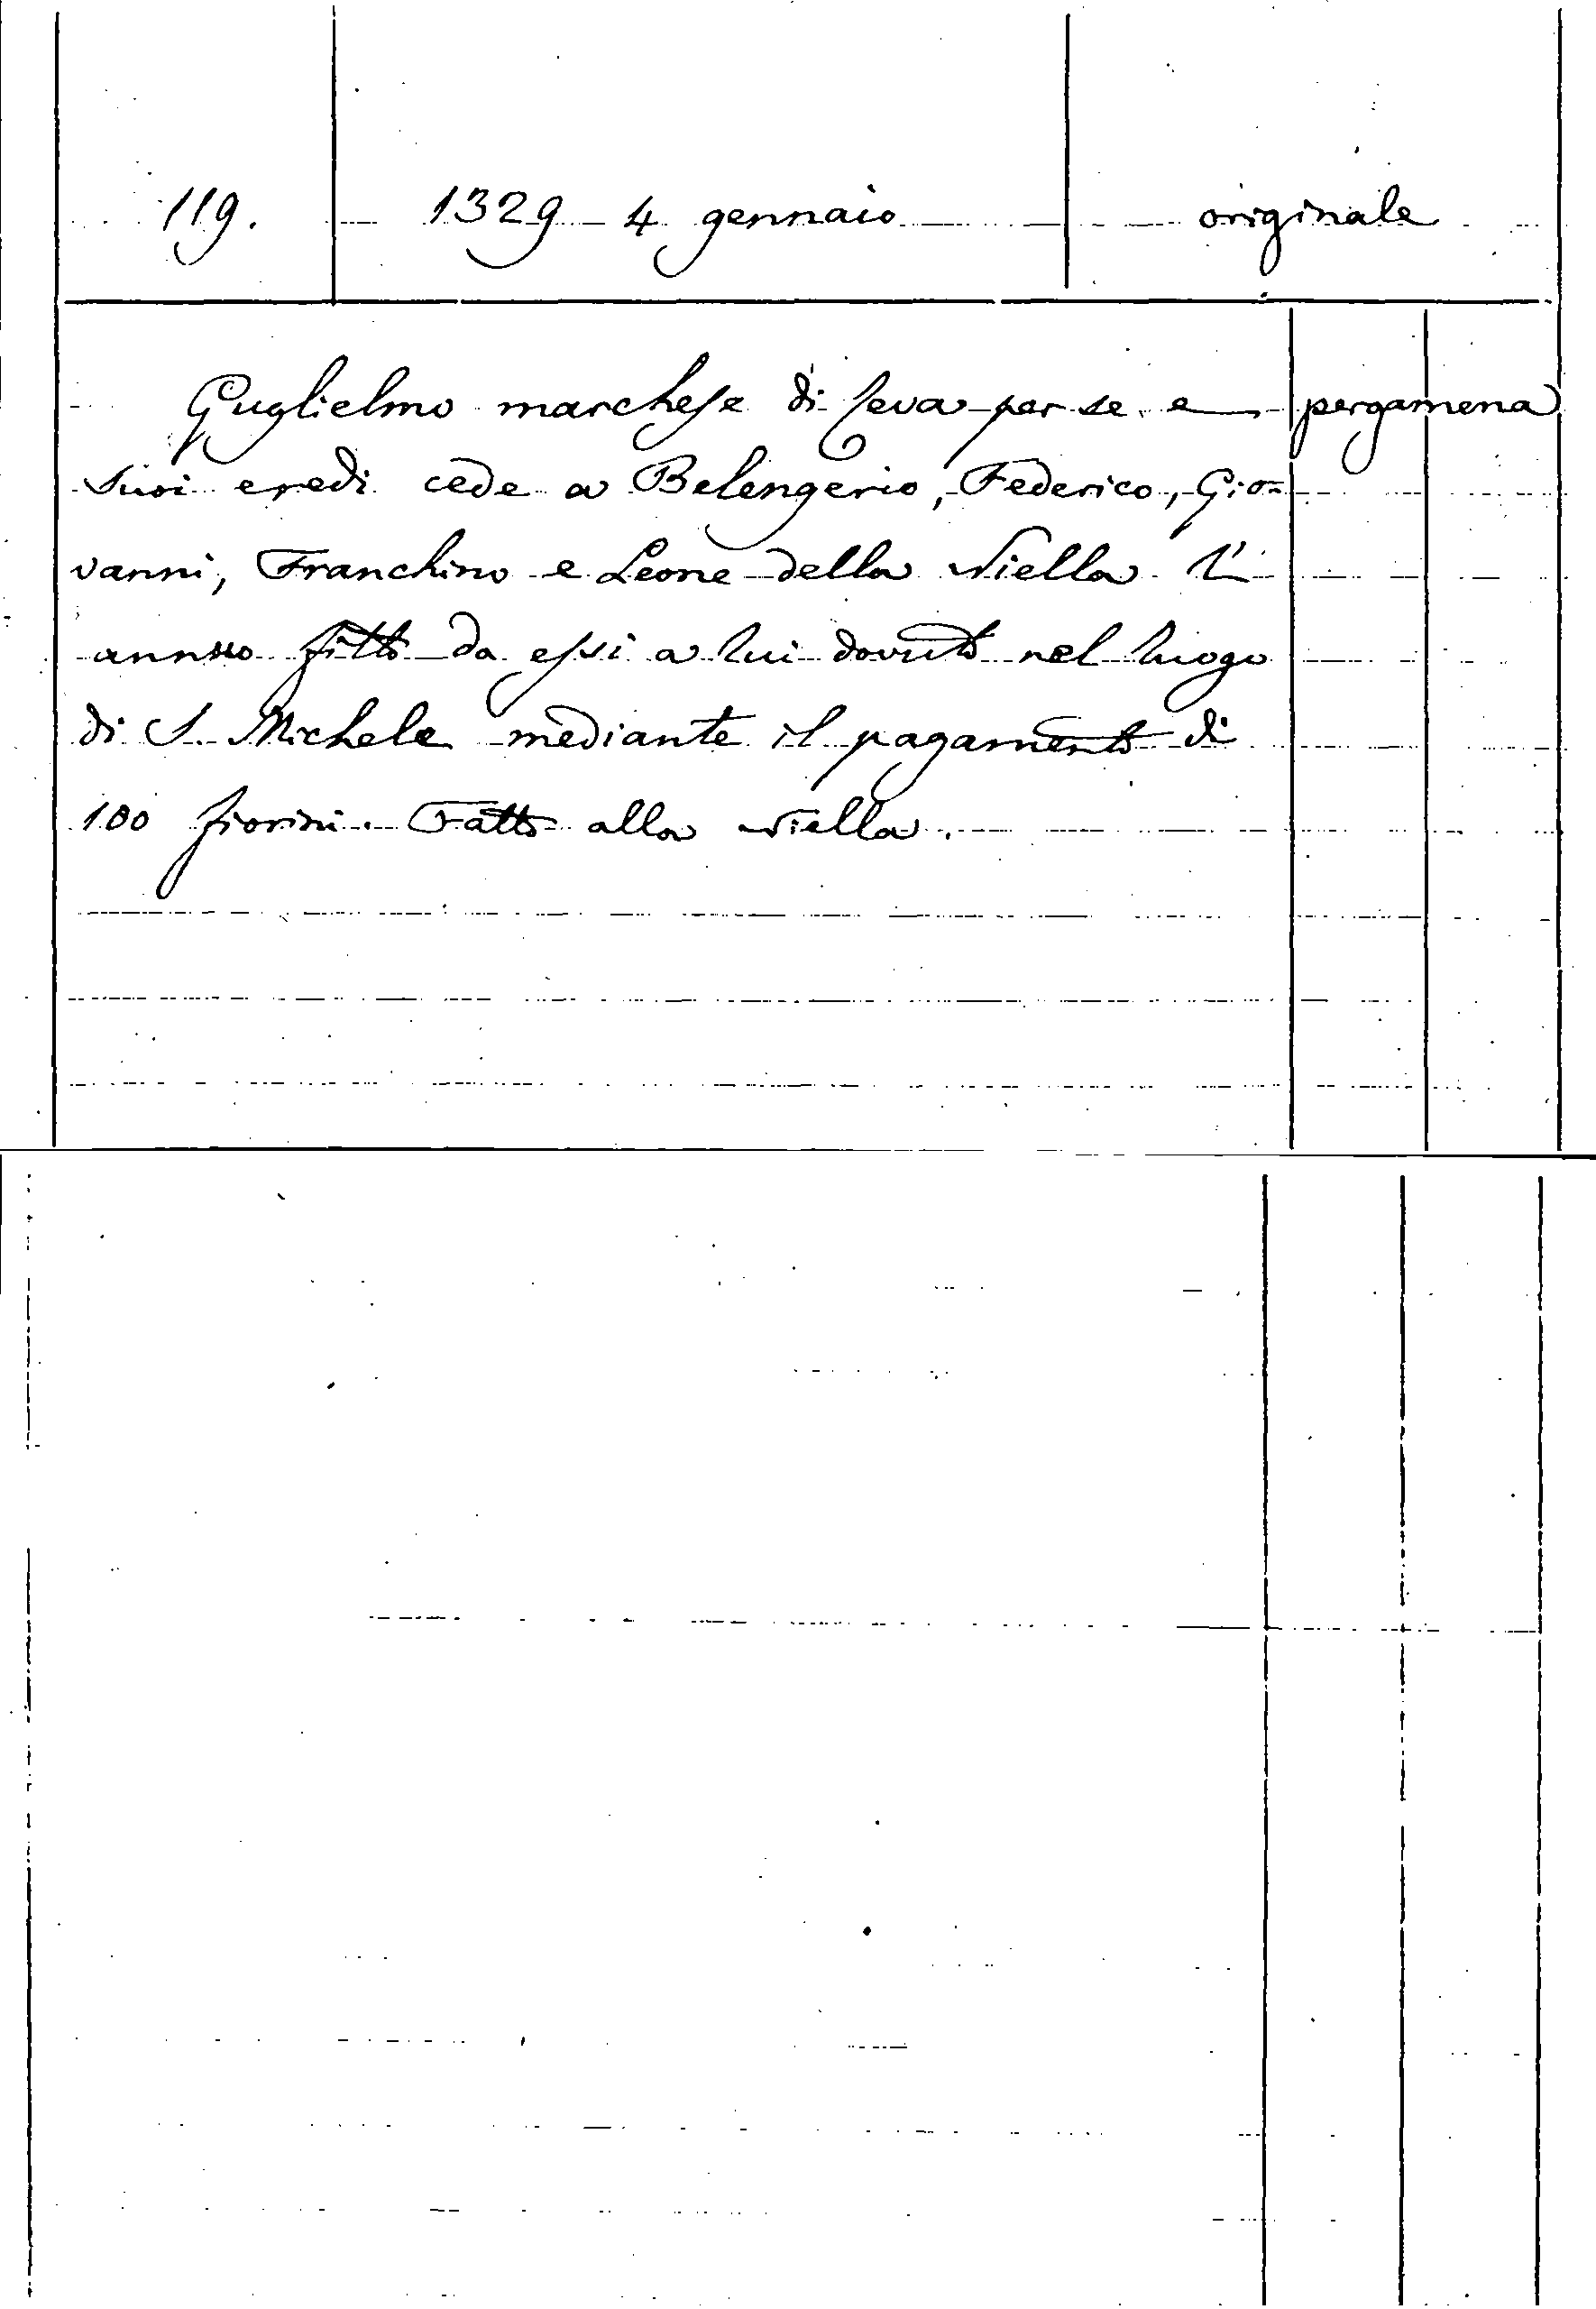 119. 1329 4 gennaio originale
Guglielmo marchese di Ceva per se e pergamena
suoi eredi cede a Belengerio, Federico, Gio=
vanni, Franchino e Leone della Niella l'
annuo fitto da essi a lui dovuto nel luogo
di S. Michele mediante il pagamento di
100 fiorini. Fatto alla Niella.